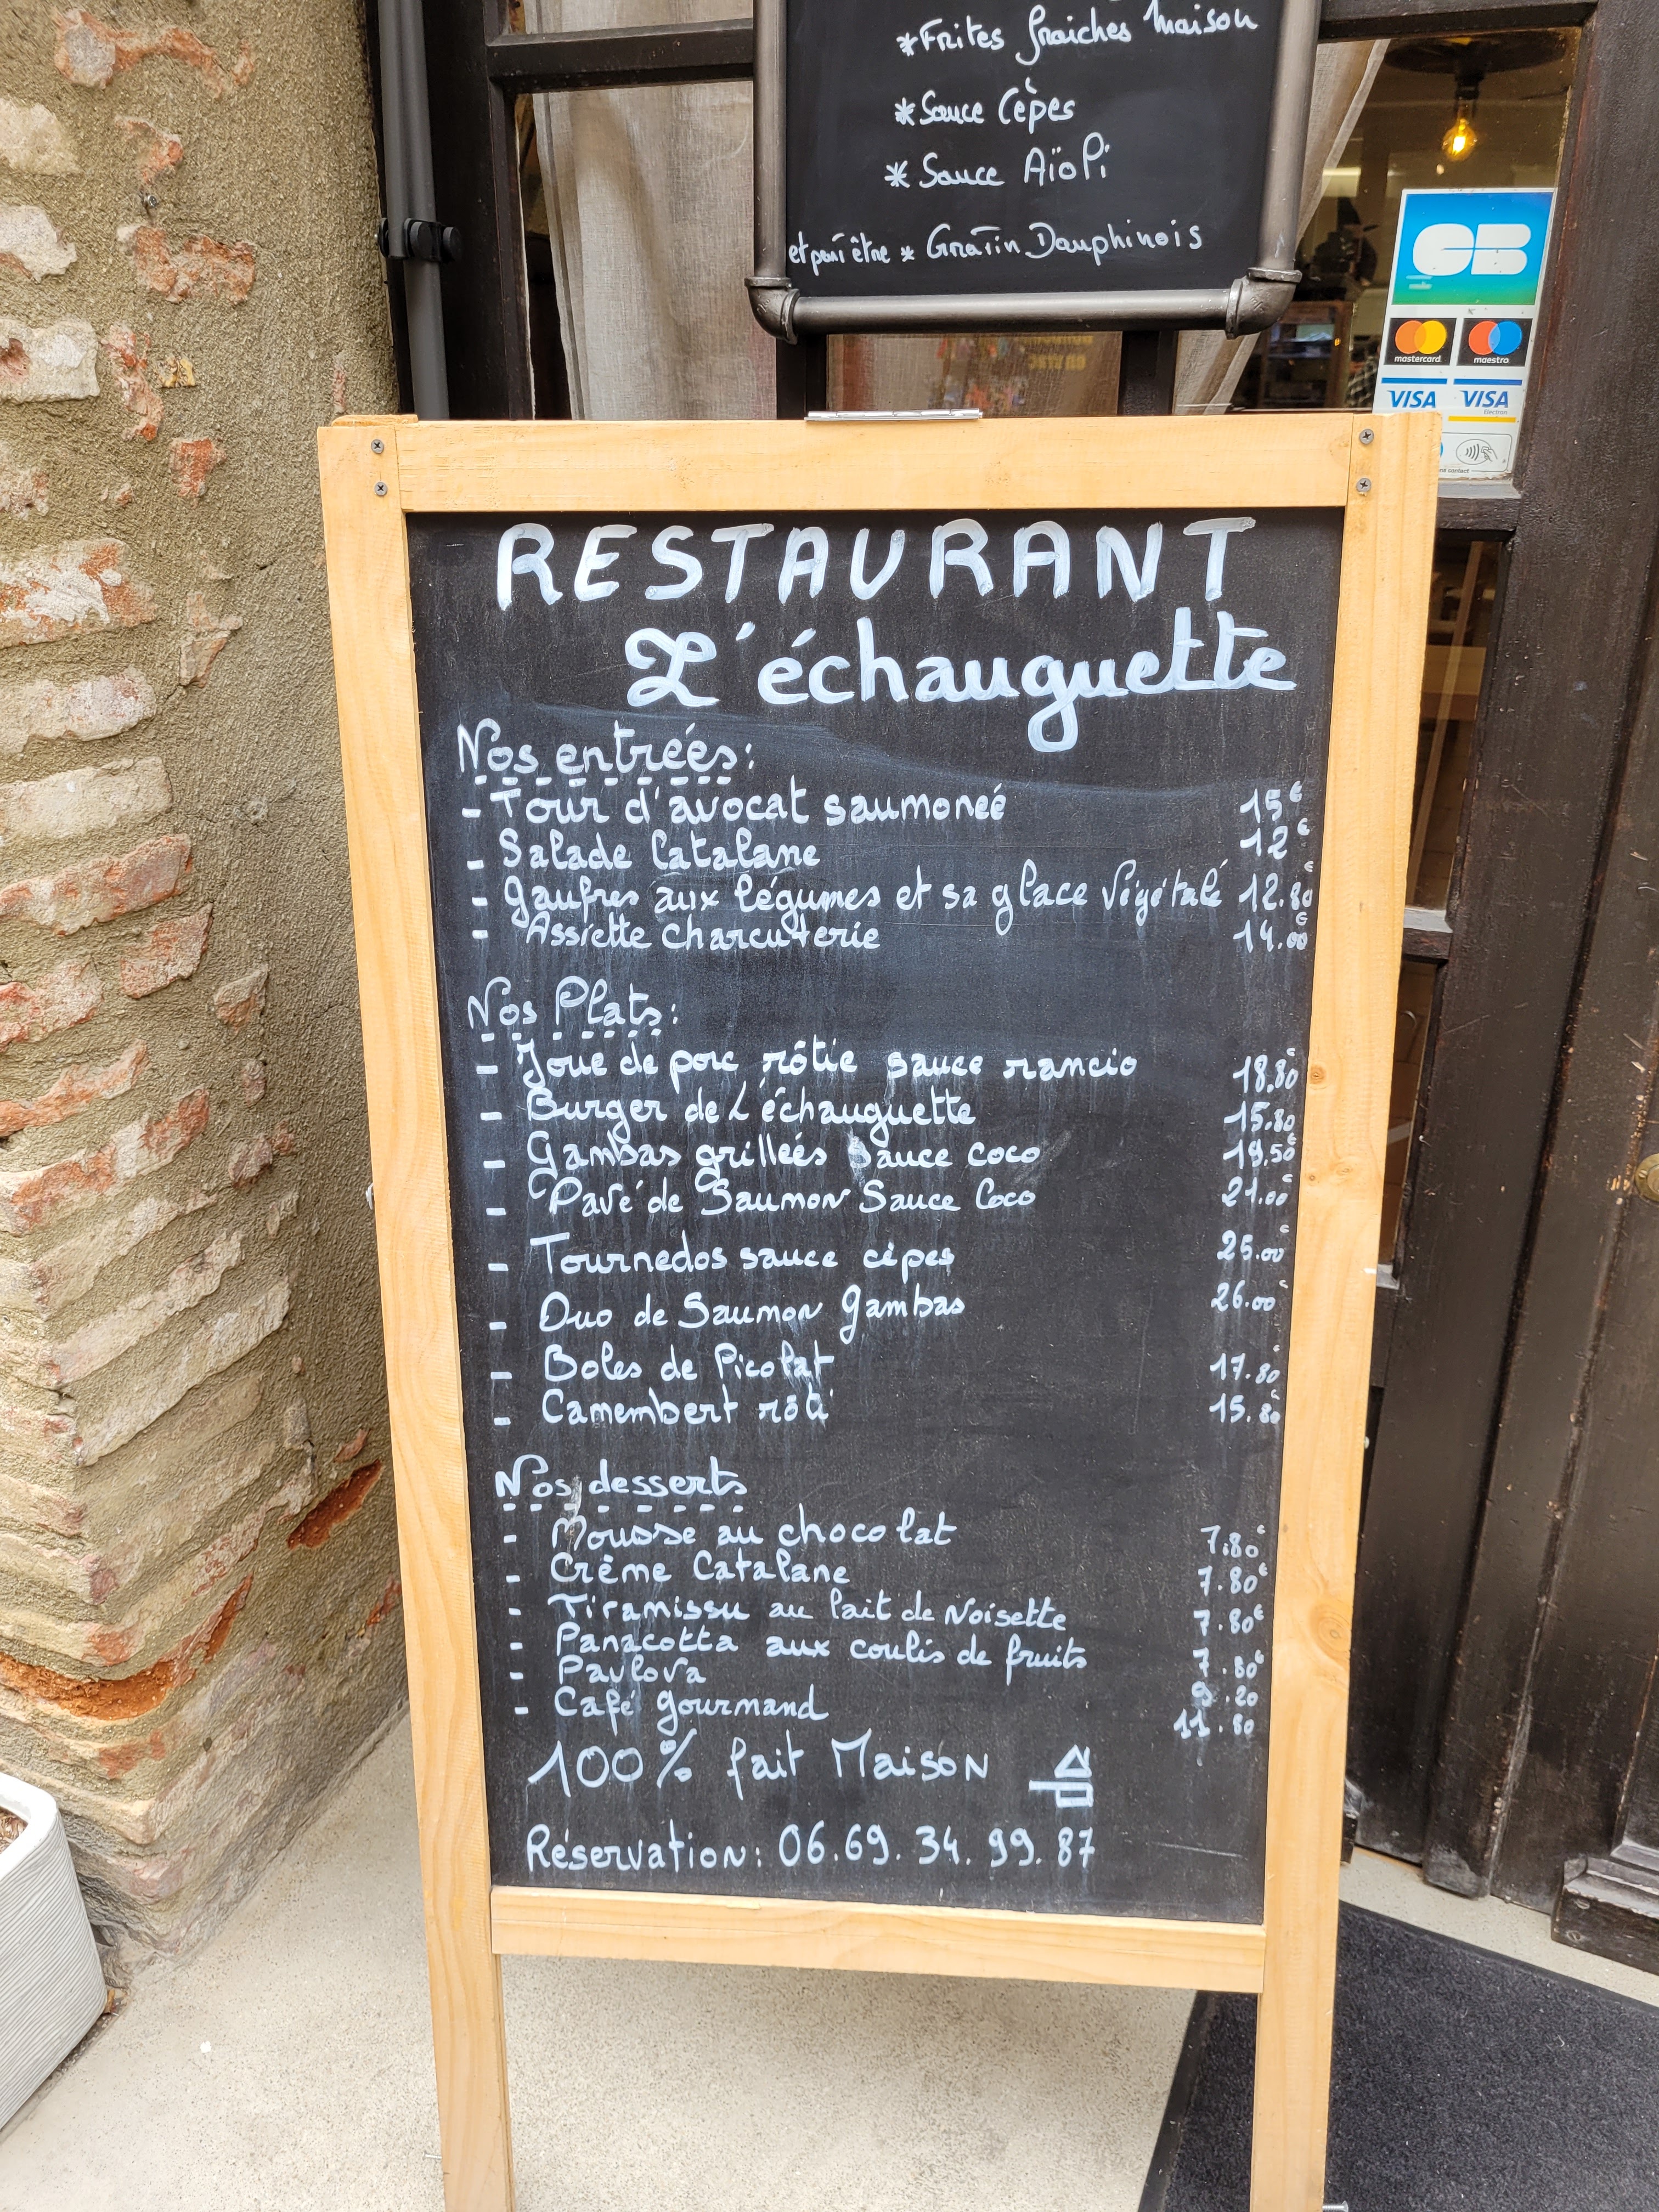 *Frites fraiches Maison
*Sauce Cèpes
* Sauce Aïoli
et peut être * Gratin Dauphinois
CB
mastercard maestro
VISA VISA
Electron
RESTAURANT
L'échauguette
Nos entrées:
- Tour d'avocat saumoneé 15€
- Salade Catalane 12€
- Gaufres aux légumes et sa glace végétale 12.80€
- Assiette charcuterie 14.00€
Nos Plats:
- Joue de porc rôtie sauce rancio 18.80€
- Burger de L'échauguette 15.80
- Gambas grilleés sauce coco 19,50€
- Pavé de Saumon Sauce Coco 21.00€
- Tournedos sauce cèpes 25.00€
- Duo de Saumon Gambas 26.00€
- Boles de Picolat 17.80€
- Camembert rôti 15.80€
Nos desserts
- Mousse au chocolat 7.80€
- Crème Catalane 7.80€
- Tiramissu au lait de Noisette 7.80€
- Panacotta aux coulis de fruits 7.80€
- Pavlova 9.20
- Café gourmand 11.80
100% fait Maison
Réservation: 06.69.34.99.87